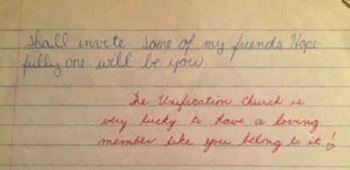 shall invite some of my friends Hope
fully one will be you.
The Unification Church is
very lucky to have a loving
member like you belong to it!